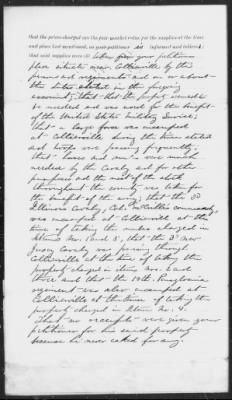 that the prices charged are the fair market rates for the supplies at the time
and place last mentioned, as your petitioner is informed and believes;
that said supplies were all taken from your petitioners
place situate near Collierville by the
forces and regiments and on or about
the dates stated in the foregoing
account; that the property
be needed and was used for the benefit
of the United States military service;
that a large force was encamped
at Collierville during the time stated
and troops were passing frequently;
that horses and mules were much
needed by the Cavalry and for other
purposes and the most of the stock
throughout the country was taken for
the benefit of the army; that the 3d
Illinois Cavalry, Col. McCrillis Commanding
was encamped at Collierville at the
time of taking the mules charged in
items Nos. 1 and 5, that the 2d New
Jersey Cavalry was passing through
Collierville at the time of taking the
property charged in items Nos. 2 and
three and that the 19th Pennsylvania
regiment was also encamped at
Collierville at the time of taking the
property charged in item No. 4.
That no receipts were given your
petitioner for his said property
because he never asked for any.